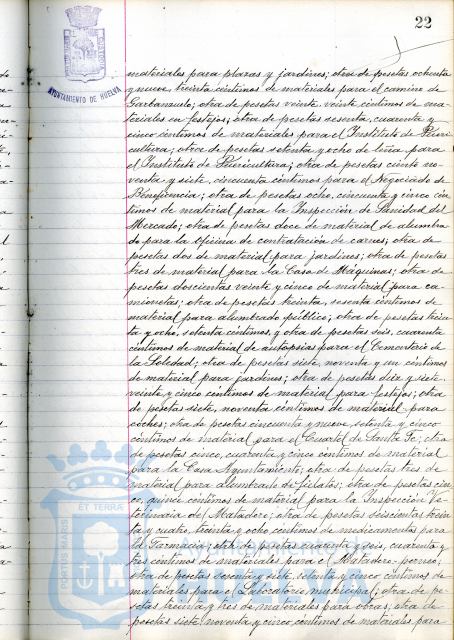 22
AYUNTAMIENTO DE HUELVA
materiales para plazas y jardines; otra de pesetas ochenta
y nueve, treinta céntimos de materiales para el camino de
Garbanzuelo; otra de pesetas veinte, veinte céntimos de ma-
teriales en festejos; otra de pesetas sesenta, cuarenta y
cinco céntimos de materiales para el Instituto de Pueri
cultura; otra de pesetas setenta y ocho de leña para
el Instituto de Puericultura; otra de pesetas ciento no-
venta y siete, cincuenta céntimos para el Negociado de
Beneficencia; otra de pesetas ocho, cincuenta y cinco cén
timos de material para la Inspección de Sanidad del
Mercado; otra de pesetas doce de material de alumbra
do para la oficina de contratación de carnes; otra de
pesetas dos de material para jardines; otra de pesetas
tres de material para la Casa de Máquinas; otra de
pesetas doscientas veinte y cinco de material para ca-
mionetas; otra de pesetas treinta, sesenta céntimos de
material para alumbrado público; otra de pesetas trein
ta y ocho, setenta céntimos, y otra de pesetas seis, cuarenta
céntimos de material de autopsias para el Cementerio de
la Soledad; otra de pesetas siete, noventa y un céntimos
de material para jardines; otra de pesetas diez y siete,
veinte y cinco céntimos de material para festejos; otra
de pesetas siete, noventa céntimos de material para
coches; otra de pesetas cincuenta y nueve, setenta y cinco
céntimos de material para el Cuartel de Santa Fe; otra
de pesetas cinco, cuarenta y cinco céntimos de material
para la Casa Ayuntamiento; otra de pesetas tres de
material para alumbrado de fielatos; otra de pesetas cin-
co, quince céntimos de material para la Inspección Ve-
terinaria de Matadero; otra de pesetas seiscientas trein
ta y cuatro, treinta y ocho céntimos de medicamentos para
la Farmacia; otra de pesetas cuarenta y seis, cuarenta y
tres céntimos de materiales para el Matadero
otra de pesetas sesenta y siete, setenta y cinco céntimos de
materiales para el Laboratorio municipal; otra de pe-
setas treinta y tres de materiales para obras; otra de
pesetas siete, noventa y cinco céntimos de materiales para
PORTUS MARIS ET TERRA
Ayuntamiento de
HUELVA